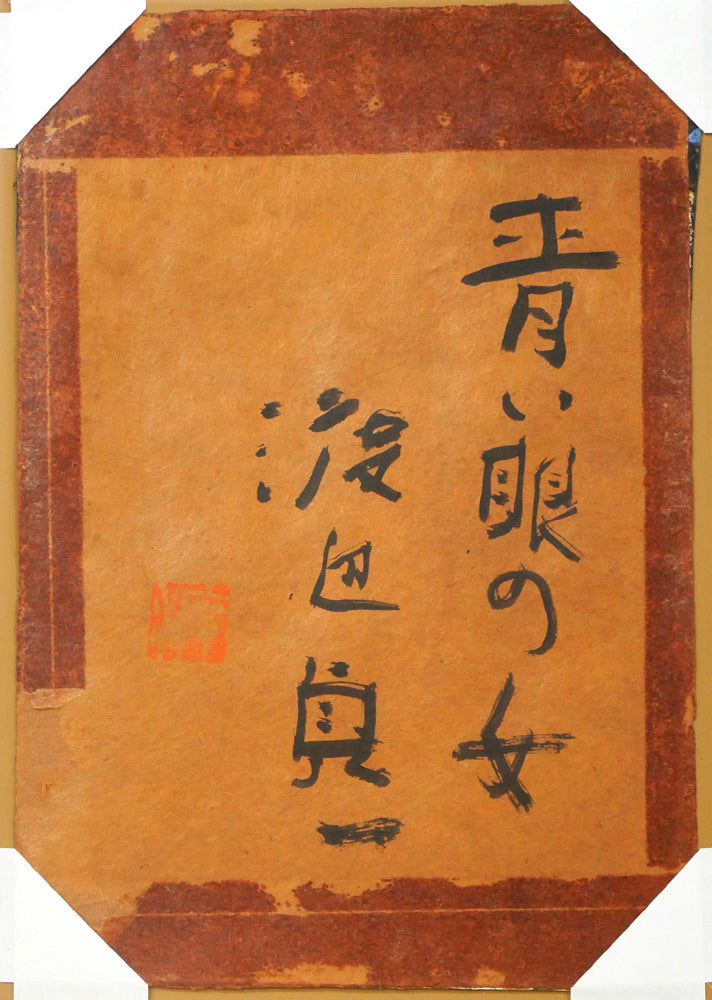 青い眼の女
渡辺貞一